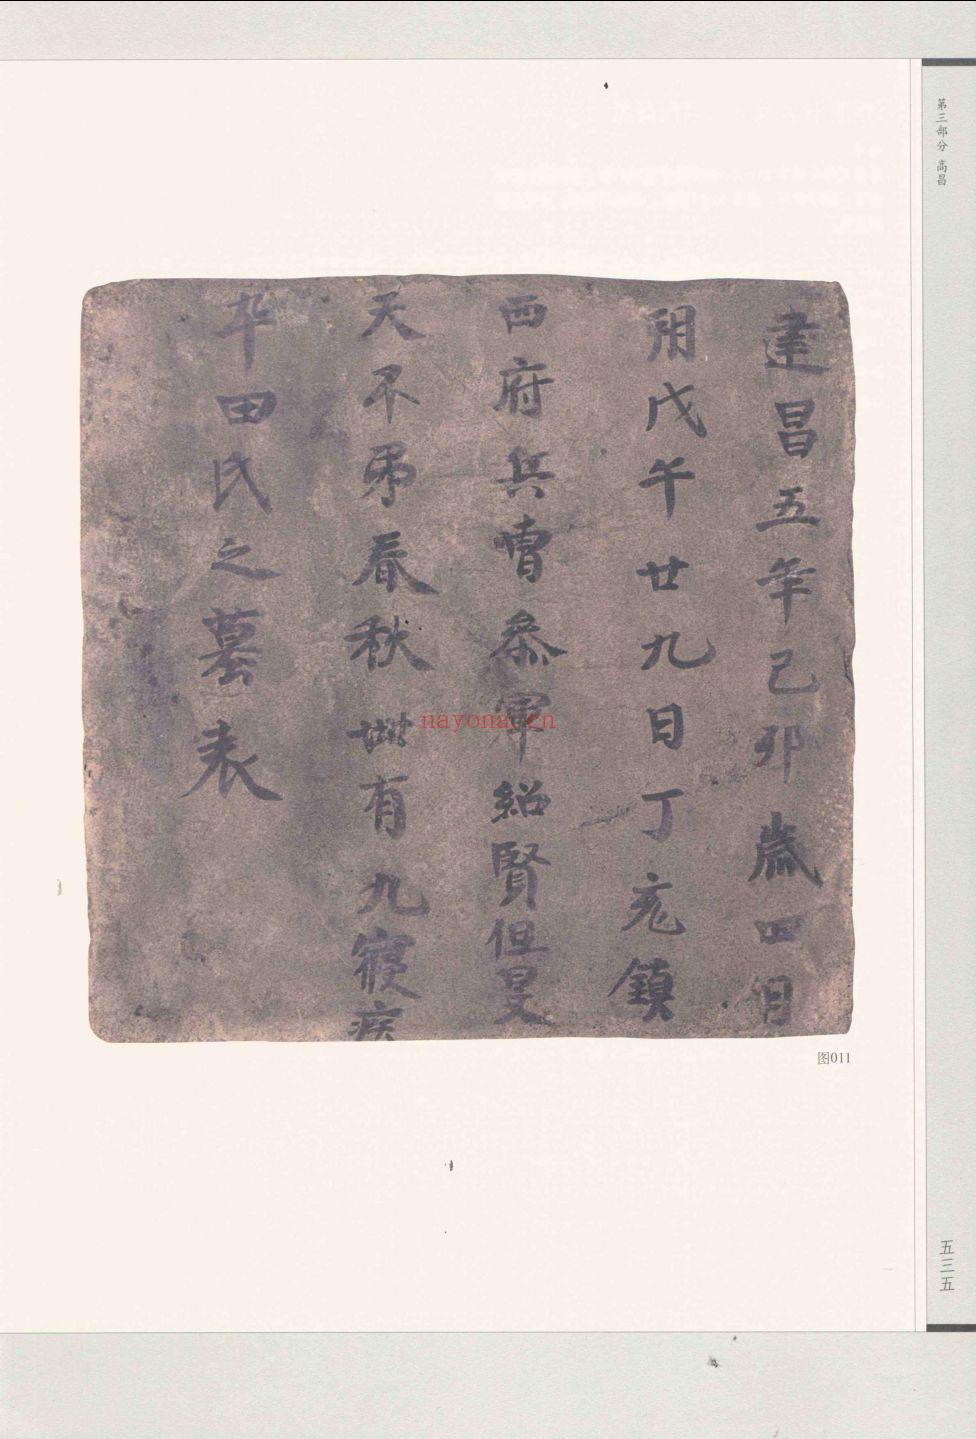 第三部分 高昌
建昌五年己卯歲四月
朔戊午廿九日丁亥鎮
西府兵曹叅軍紹賢但旻
天不弔春秋卌有九寢疾
卒田氏之墓表
nayona.cn
图011
五三五